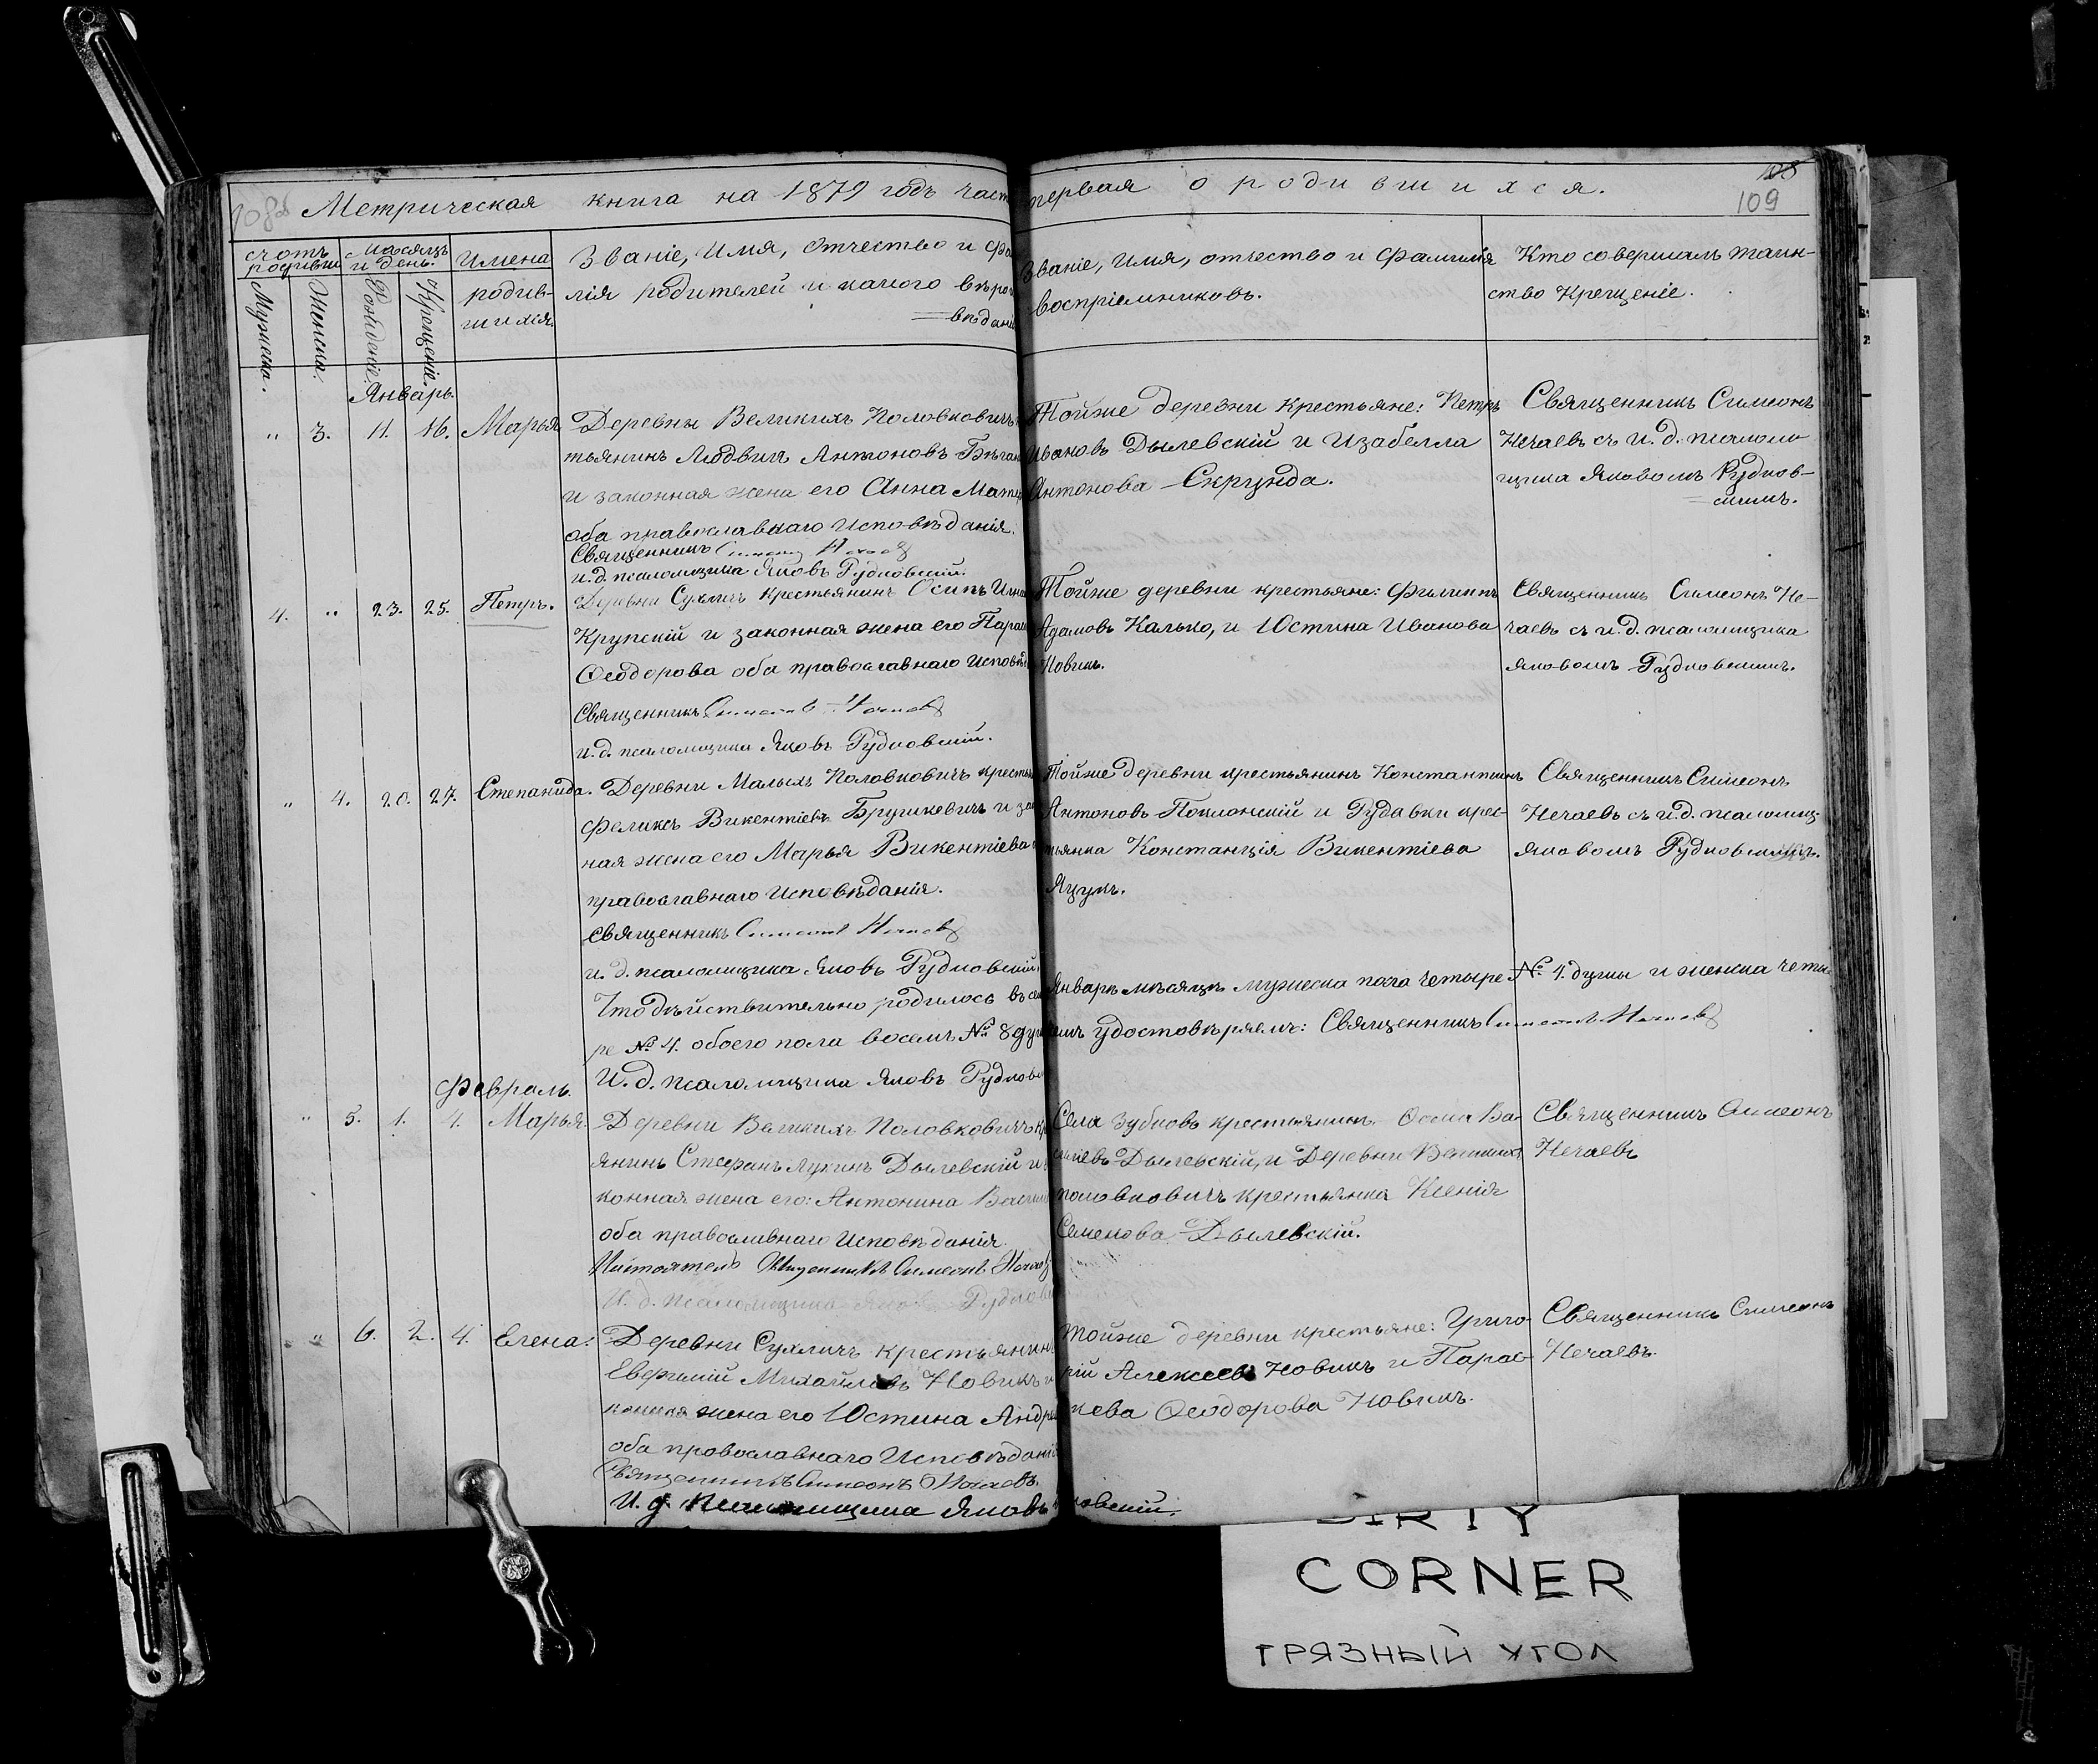 Метрическая книга на 1879 годъ част
первая о родившихся.
108
109
счотъ родивши
Мѣсяцъ и день.
Имена родив-
шихся.
Мужеска.
Женска.
Рожденіе.
Крещеніе.
Званіе, Имя, отчество и фа
лія родителей и какого вѣро
вѣдані
Званіе, Имя, отчество и фамилія
воспріемниковъ.
Кто совершалъ таин-
ство Крещеніе.
Январь.
" 3. 11. 16. Марья
Деревни Великихъ Половковичъ
тьянинъ Людвигъ Антоновъ
и законная жена его Анна
оба православнаго Исповѣданія.
Священникъ
и.д. псаломщика Яковъ Рудковскій.
Тойже деревни крестьяне: Петръ
Ивановъ Дылевскій и Изабелла
Антонова Скрунда.
Священникъ Симеонъ
Нечаевъ съ и.д. псаломо
щика Яковомъ Рудков-
скимъ.
4. " 23. 25. Петръ.
Деревни Сухличъ крестьянинъ Осипъ
Крупскій и законная жена его Парас
Ѳеодорова оба православнаго Исповѣ
Священникъ Симеонъ Нечаевъ
и.д. псаломщика Яковъ Рудковскій.
Тойже деревни крестьяне: Филиппъ
Адамовъ Калько, и Юстина Иванова
Новикъ.
Священникъ Симеонъ Не-
чаевъ съ и.д. псаломщика
Яковомъ Рудковскимъ.
" 4. 20. 27. Степанида.
Деревни Малыхъ Половковичъ кресть
Феликсъ Викентіевъ Брушкевичъ и за
ная жена его Марья Викентіева
православнаго Исповѣданія.
Священникъ Симеонъ Нечаевъ
и.д. псаломщика Яковъ Рудковскій.
Тойже деревни крестьянинъ Константинъ
Антоновъ Поклонскій и Рудавки крес-
тьянка Констанція Викентіева
Яцукъ.
Священникъ Симеонъ
Нечаевъ съ и.д. псаломщ.
Яковомъ Рудковскимъ.
Что дѣйствительно родилось въ
Январѣ мѣсяцѣ мужеска пола четыре № 4. души и женска четы
ре № 4. обоего пола восемъ № 8 душ
емъ удостовѣряемъ: Священникъ Симеонъ Нечаевъ
И.д. псаломщика Яковъ Рудков
Февраль.
" 5. 1. 4. Марья.
Деревни Великихъ Половковичъ кр
янинъ Стефанъ Лукинъ Дылевскій и
конная жена его: Антонина Васил
оба православнаго Исповѣданія.
Настоятель Священникъ Симеонъ Нечаевъ
И.д. псаломщика Яковъ Рудков
Села Зубковъ крестьянинъ Ѳома Ва-
силіевъ Дылевскій, и Деревни Великихъ
Половковичъ крестьянка Ксенія
Семенова Дылевскій.
Священникъ Симеонъ
Нечаевъ
" 6. 2. 4. Елена.
Деревни Сухличъ крестьянинъ
Евфимій Михайловъ Новикъ и
конная жена его Юстина Андре
оба православнаго Исповѣдані
Священникъ Симеонъ Нечаевъ.
И.д. Псаломщика Яковъ
ковскій.
Тойже деревни крестьяне: Григо-
рій Алексеевъ Новикъ и Парас-
кева Ѳеодорова Новикъ.
Священникъ Симеонъ
Нечаевъ.
DIRTY
CORNER
ГРЯЗНЫЙ УГОЛ